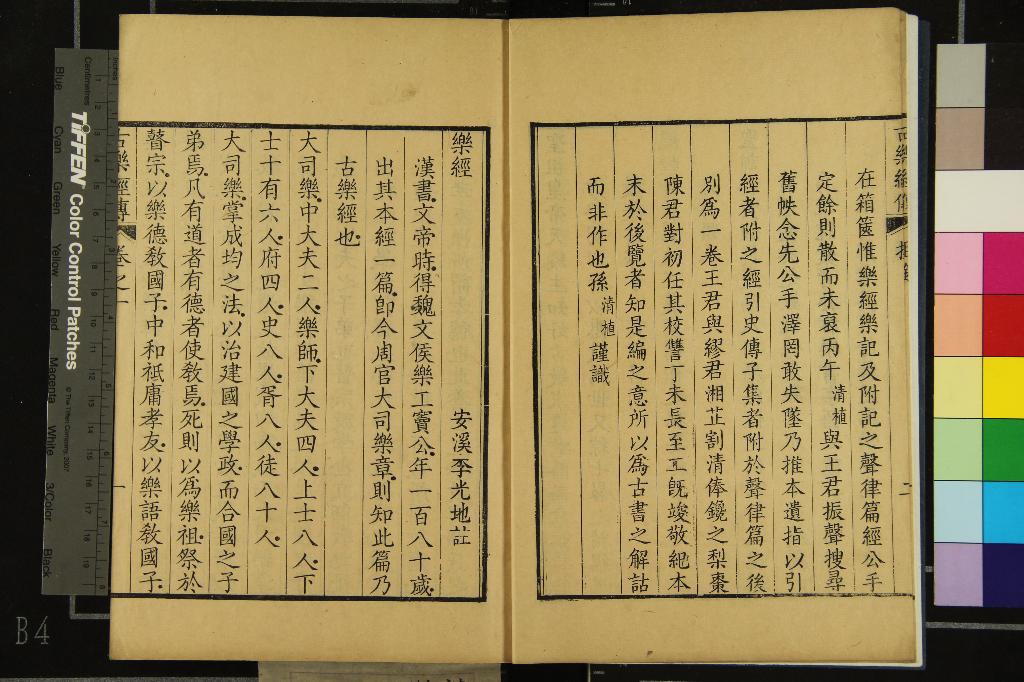 在箱篋惟樂經樂記及附記之聲律篇經公手
定餘則散而未裒丙午清植與王君振聲搜尋
舊帙念先公手澤罔敢失墜乃推本遺指以引
經者附之經引史傳子集者附於聲律篇之後
別爲一卷王君與繆君湘芷割清俸鑱之梨棗
陳君對初任其校讐丁未長至工旣竣敬紀本
末於後覽者知是編之意所以爲古書之解詁
而非作也孫清植謹識
二
樂經
安溪李光地註
漢書文帝時得魏文侯樂工竇公年一百八十歲
出其本經一篇卽今周官大司樂章則知此篇乃
古樂經也
大司樂中大夫二人樂師下大夫四人上士八人下
士十有六人府四人史八人胥八人徒八十人
大司樂掌成均之法以治建國之學政而合國之子
弟焉凡有道者有德者使敎焉死則以爲樂祖祭於
瞽宗以樂德敎國子中和祗庸孝友以樂語敎國子
古樂經傳 卷之一
一
Inches
Centimetres
TIFFEN Color Control Patches
© The Tiffen Company, 2007
Blue
Cyan
Green
Yellow
Red
Magenta
White
3/Color
Black
B4